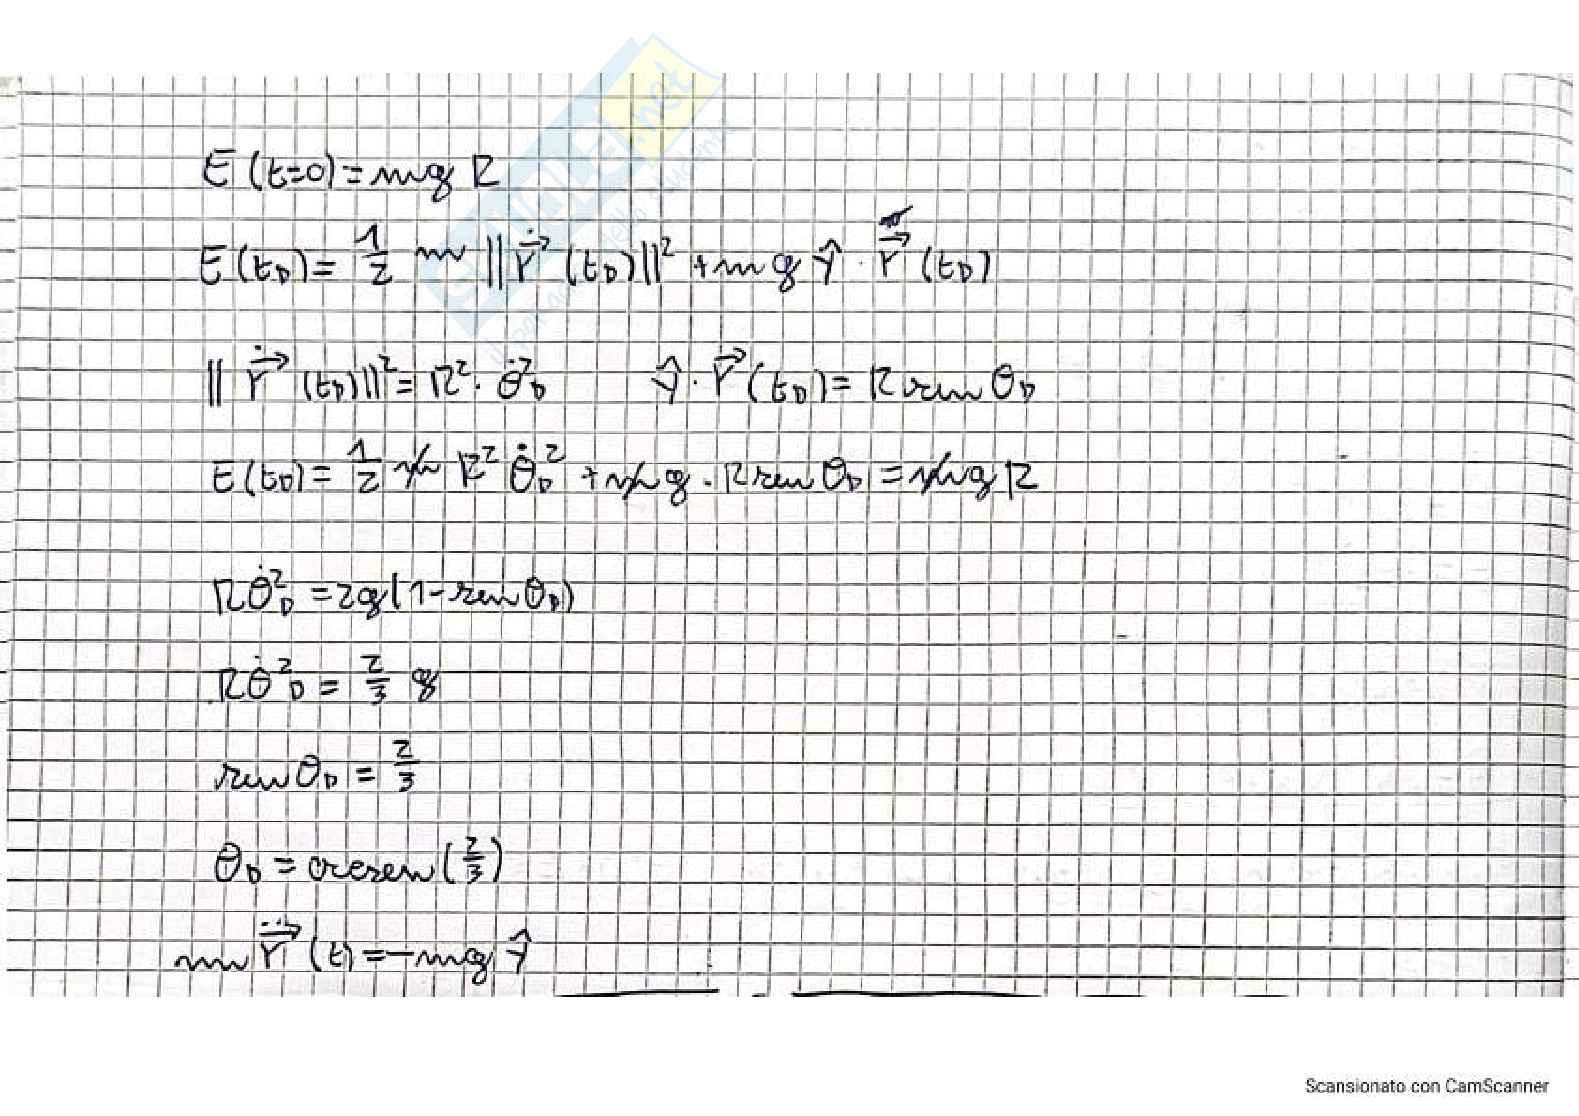 E(t=0) = mg R
E(t_D) = 1/2 m ||ṙ⃗(t_D)||² + mg ŷ · r⃗(t_D)
||ṙ⃗(t_D)||² = R² · θ̇²_D ŷ · r⃗(t_D) = R sen θ_D
E(t_D) = 1/2 m R² θ̇_D² + mg · R sen θ_D = mg R
Rθ̇²_D = 2g(1 - sen θ_D)
Rθ̇²_D = 2/3 g
sen θ_D = 2/3
θ_D = arcsen(2/3)
m r̈⃗(t) = -mg ŷ
Scansionato con CamScanner